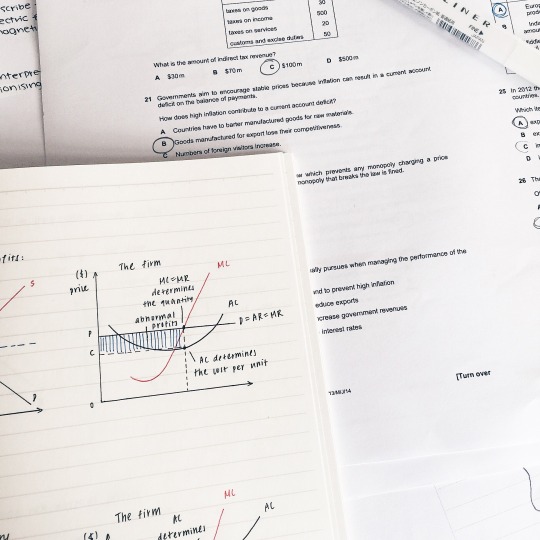 scribe
ectric
magneti
nterpre
ionising
taxes on goods 30
taxes on income 500
taxes on services 20
customs and excise duties 50
What is the amount of indirect tax revenue?
A $30m B $70m C $100m D $500m
21 Governments aim to encourage stable prices because inflation can result in a current account
deficit on the balance of payments.
How does high inflation contribute to a current account deficit?
A Countries have to barter manufactured goods for raw materials.
B Goods manufactured for export lose their competitiveness.
C Numbers of foreign visitors increase.
which prevents any monopoly charging a price
monopoly that breaks the law is fined.
ally pursues when managing the performance of the
and to prevent high inflation
educe exports
crease government revenues
interest rates
[Turn over
LINER
A Europ
prod
B India
amou
25 In 2012 th
countries.
Which ite
A exp
B ex
C in
D
26 Th
fits:
S
D
The firm
($)
price
MC
MC=MR
determines
the quantity
abnormal
profits
AC
D=AR=MR
P
C
AC determines
the cost per unit
0
The firm
MC
AC
AC
determines
($)